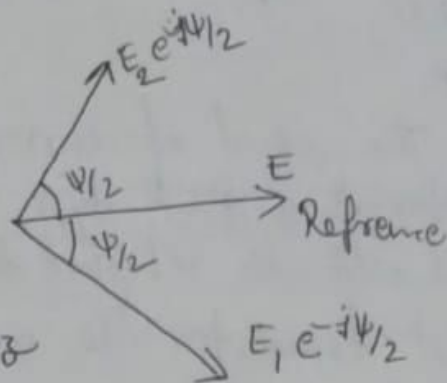 E₂ e^jΨ/2
Ψ/2
E
Refrence
Ψ/2
E₁ e^-jΨ/2